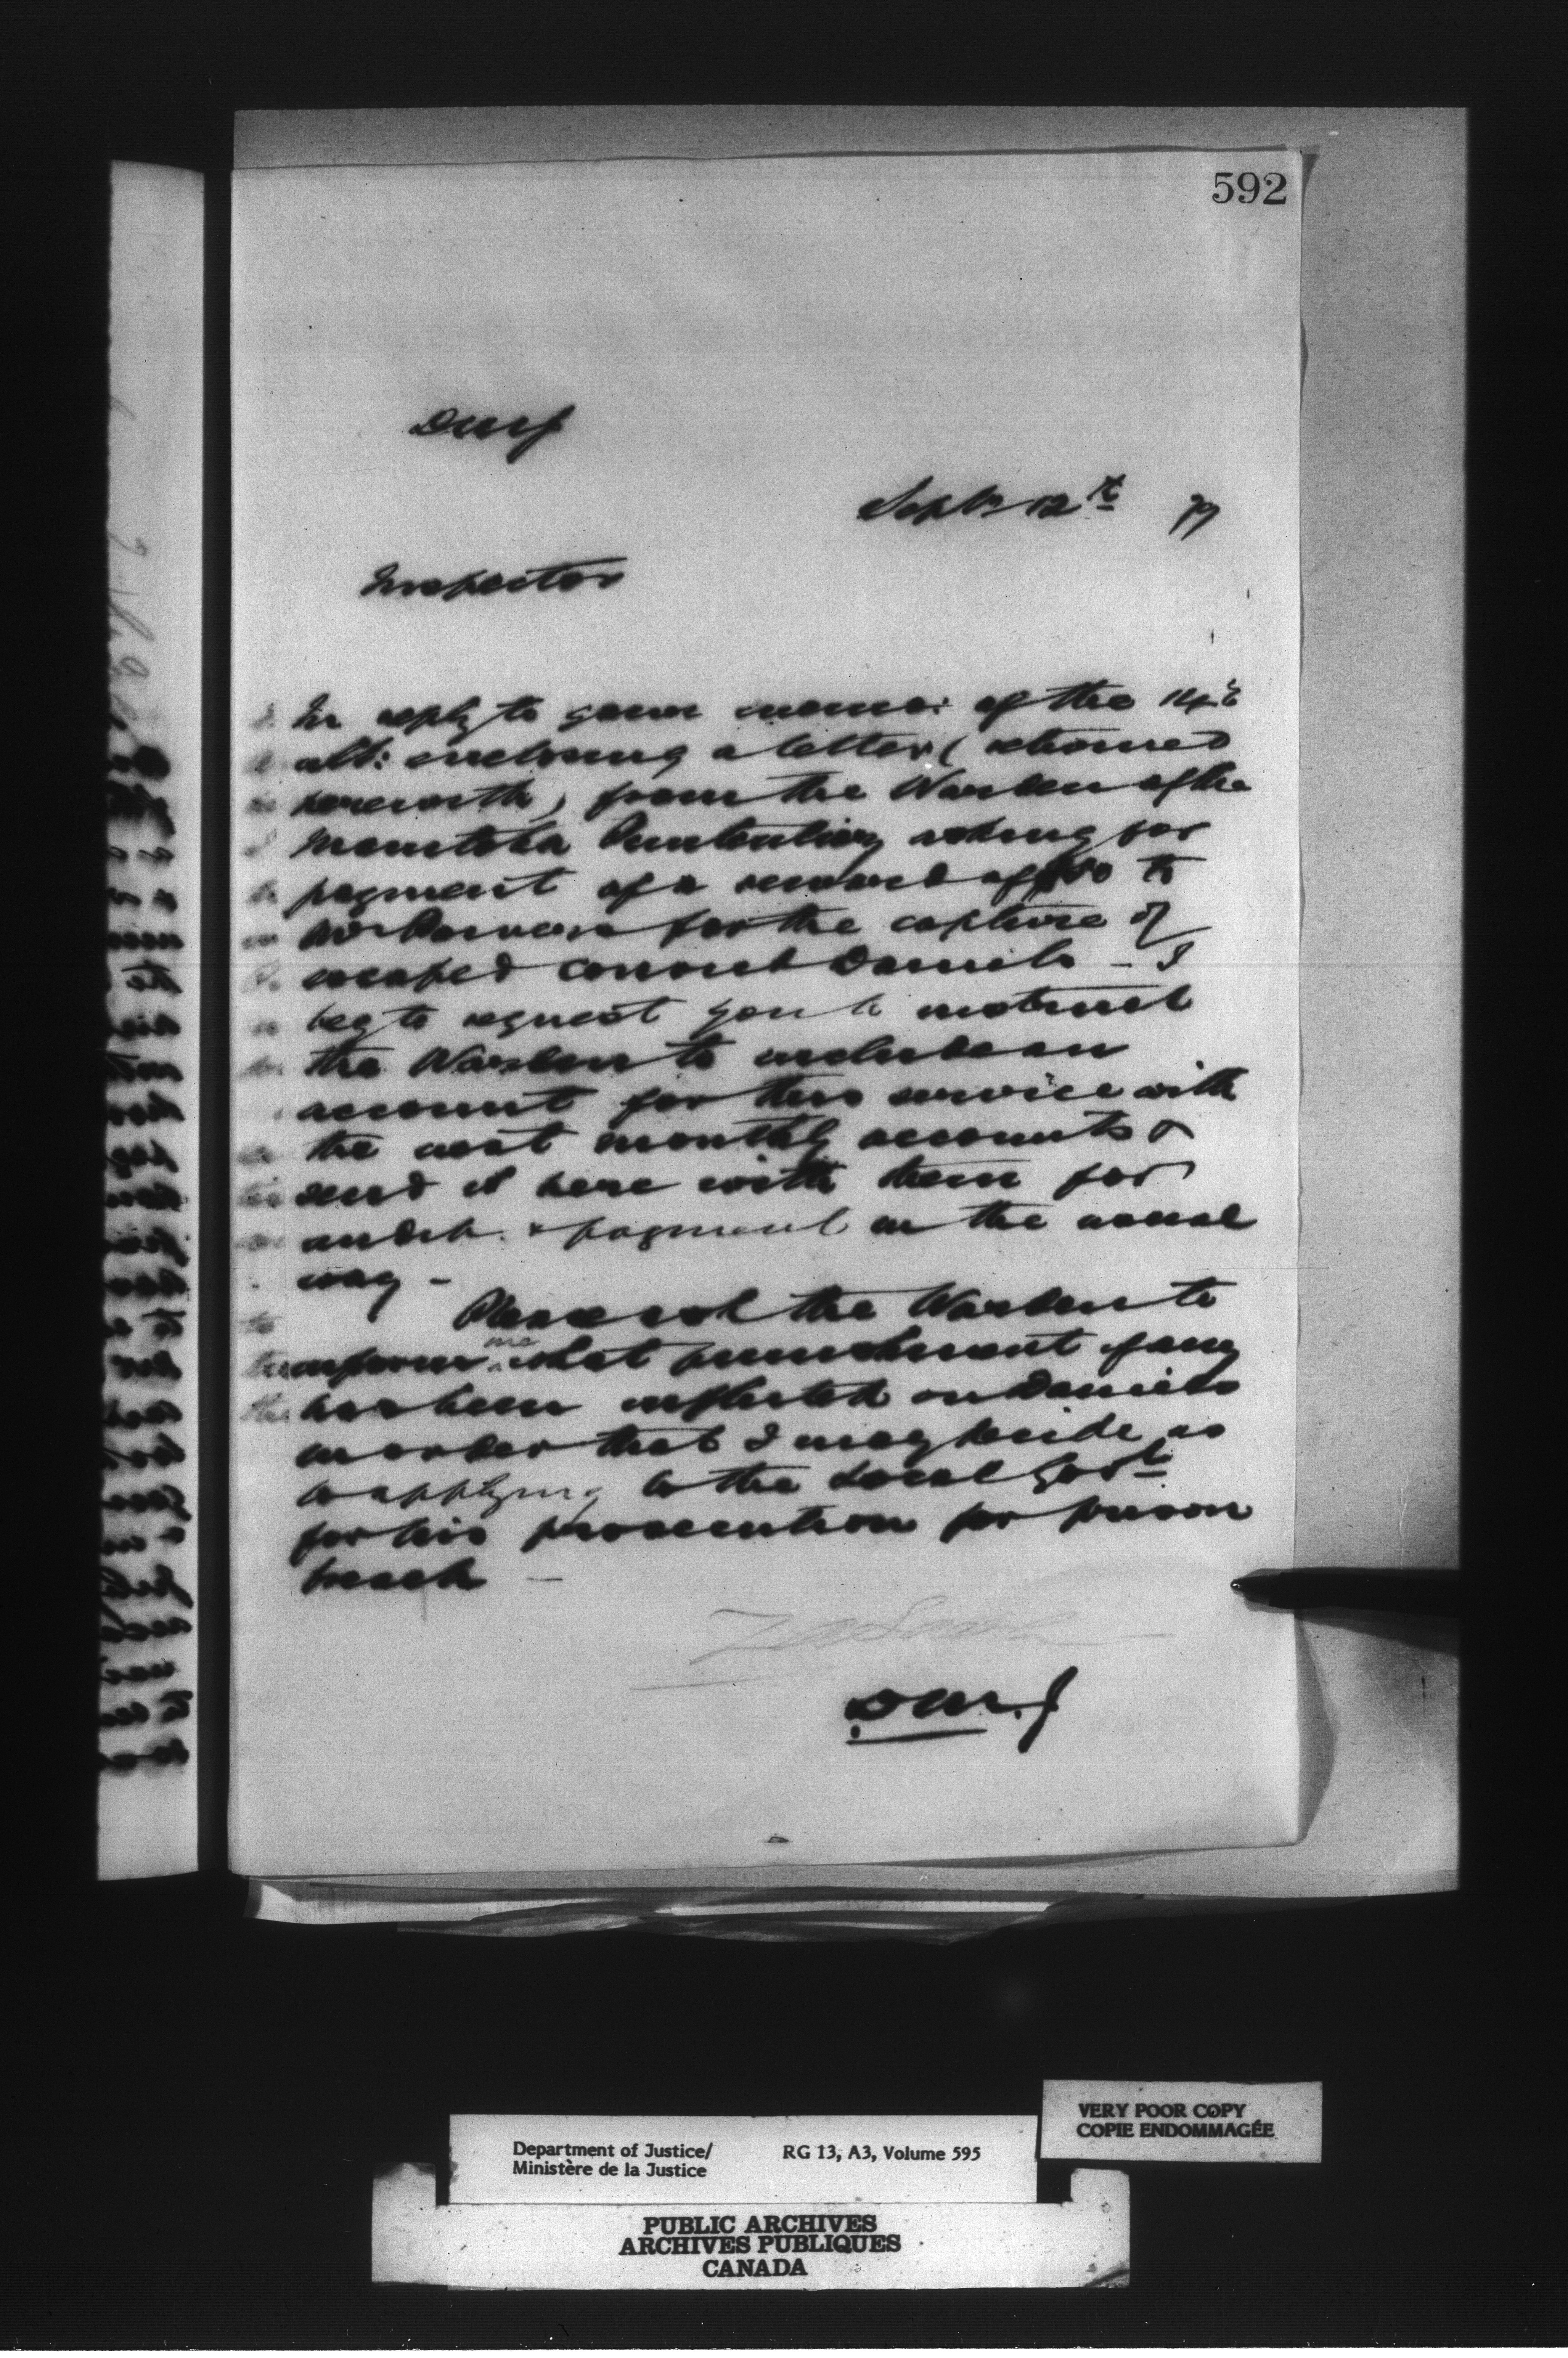 592
DMJ
Septr 12th 79
Inspector
In reply to your memo: of the 14th
ult: enclosing a letter, (returned
herewith) from the Warden of the
Manitoba Penitentiary asking for
payment of a reward of $50 to
for the capture of
escaped convict Daniels – I
beg to request you to instruct
the Warden to include an
account for this service with
the next monthly accounts &
send it here with them for
audit & payment in the usual
way –
Please ask the Warden to
inform me what punishment if any
has been inflicted on Daniels
in order that I may decide as
to applying to the Local Govt
for his prosecution for prison
breach –
D M. J
VERY POOR COPY
COPIE ENDOMMAGÉE
Department of Justice/ RG 13, A3, Volume 595
Ministère de la Justice
PUBLIC ARCHIVES
ARCHIVES PUBLIQUES
CANADA